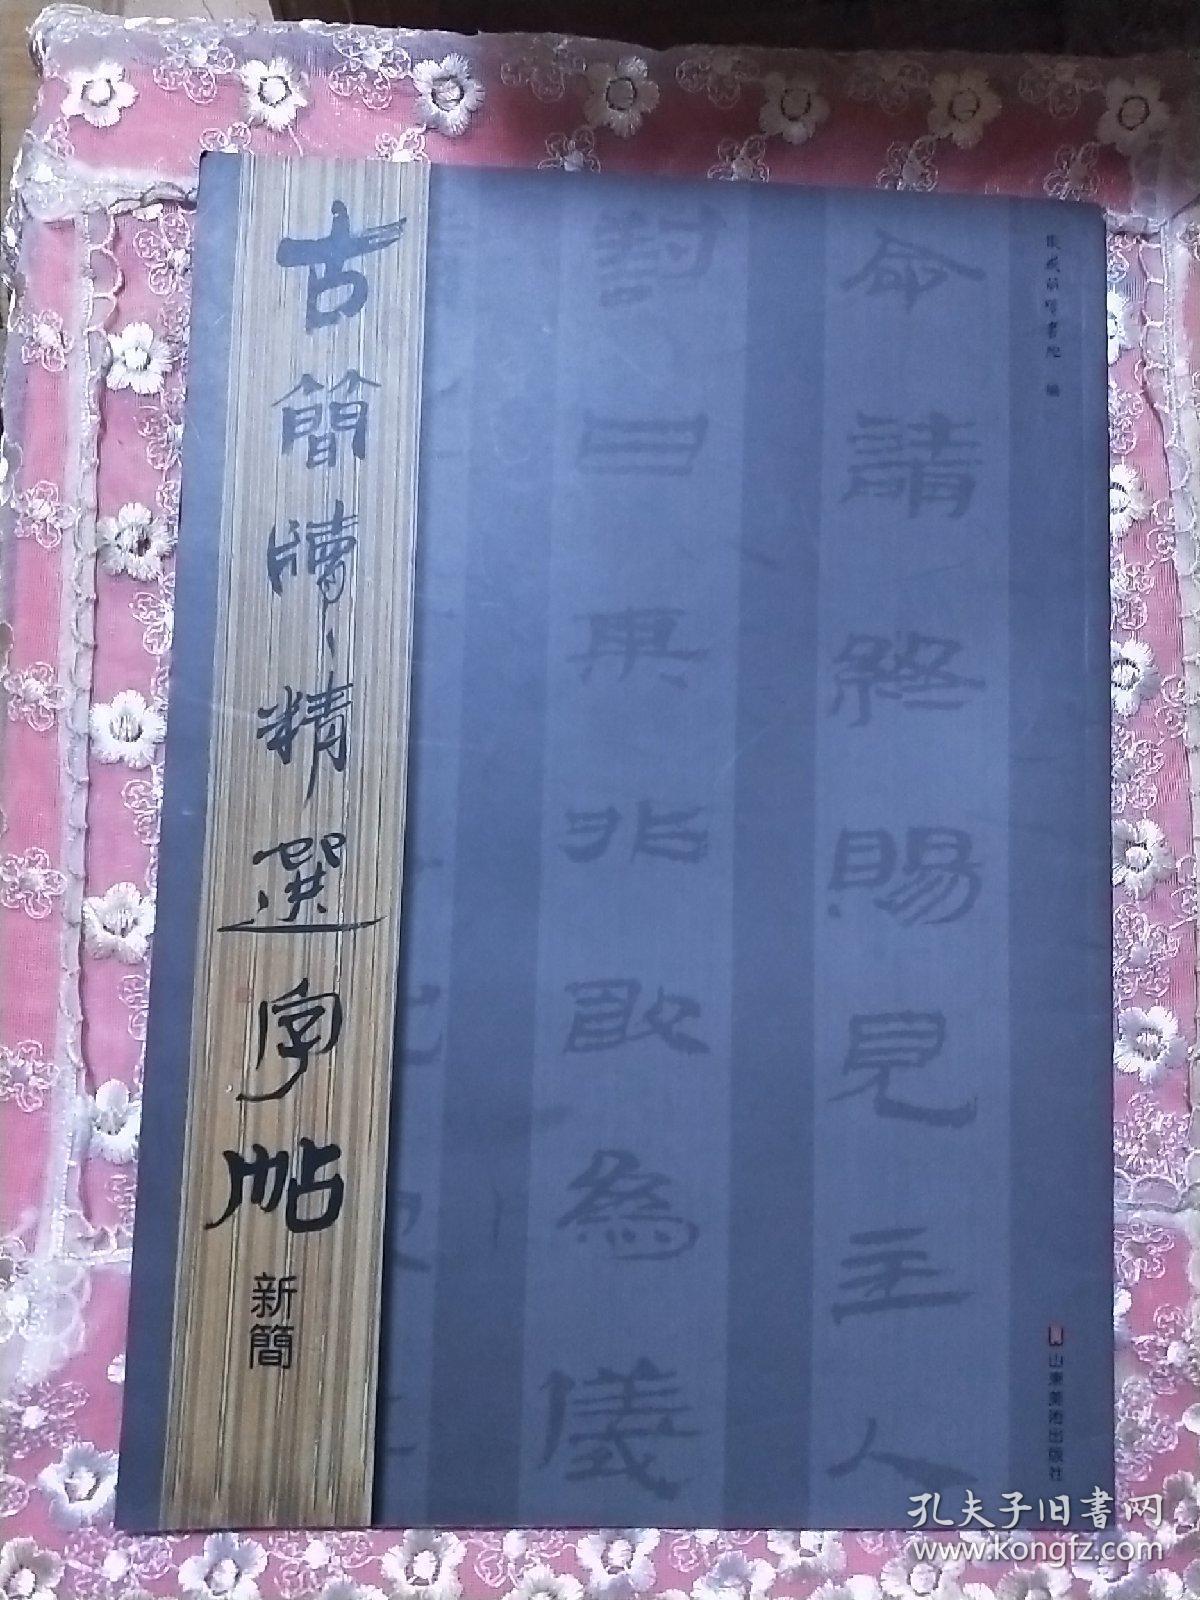 古簡牘精選字帖
新簡
命請終賜見主人
對曰某非敢為儀
編
山東美術出版社
孔夫子旧書网
www.kongfz.com